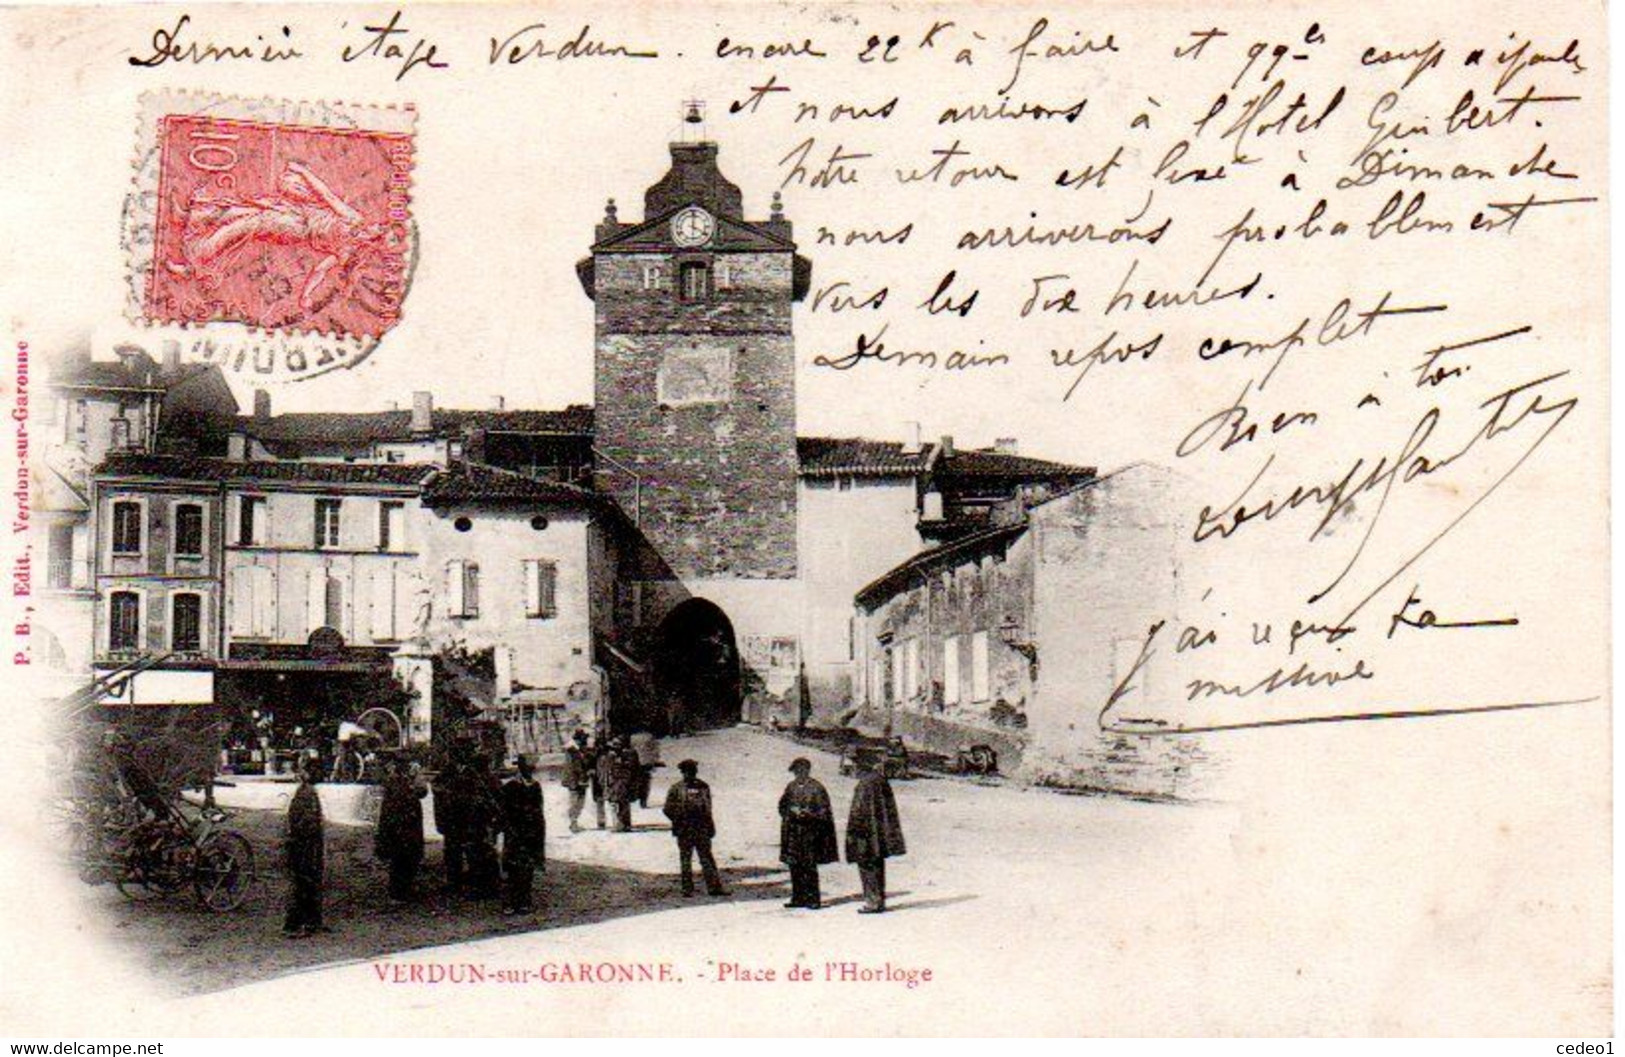 Dernier étape Verdun. encore 22 K à faire et 99 coups
et nous arrivons à l'Hotel Guibert.
Notre retour est fixé à Dimanche
nous arriverons probablement
vers les dix heures.
Demain repos complet
Bien à toi
j'ai reçu ta
missive
10c
P. B., Edit., Verdun-sur-Garonne
R F
VERDUN-sur-GARONNE. - Place de l'Horloge
cedeo1